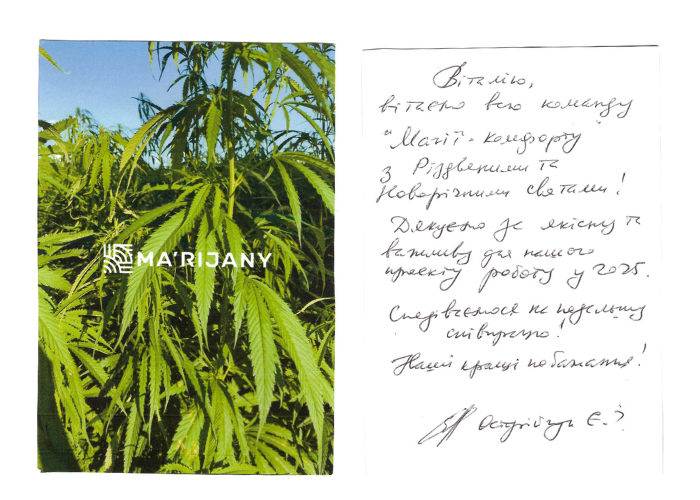 MA'RIJANY
Віталію,
вітаємо всю команду
"Магії-комфорту"
з Різдвяними та
Новорічними святами!
Дякуємо за якісну та
важливу для нашого
проєкту роботу у 2025.
Сподіваємося на подальшу
співпрацю!
Наші кращі побажання!
Є.